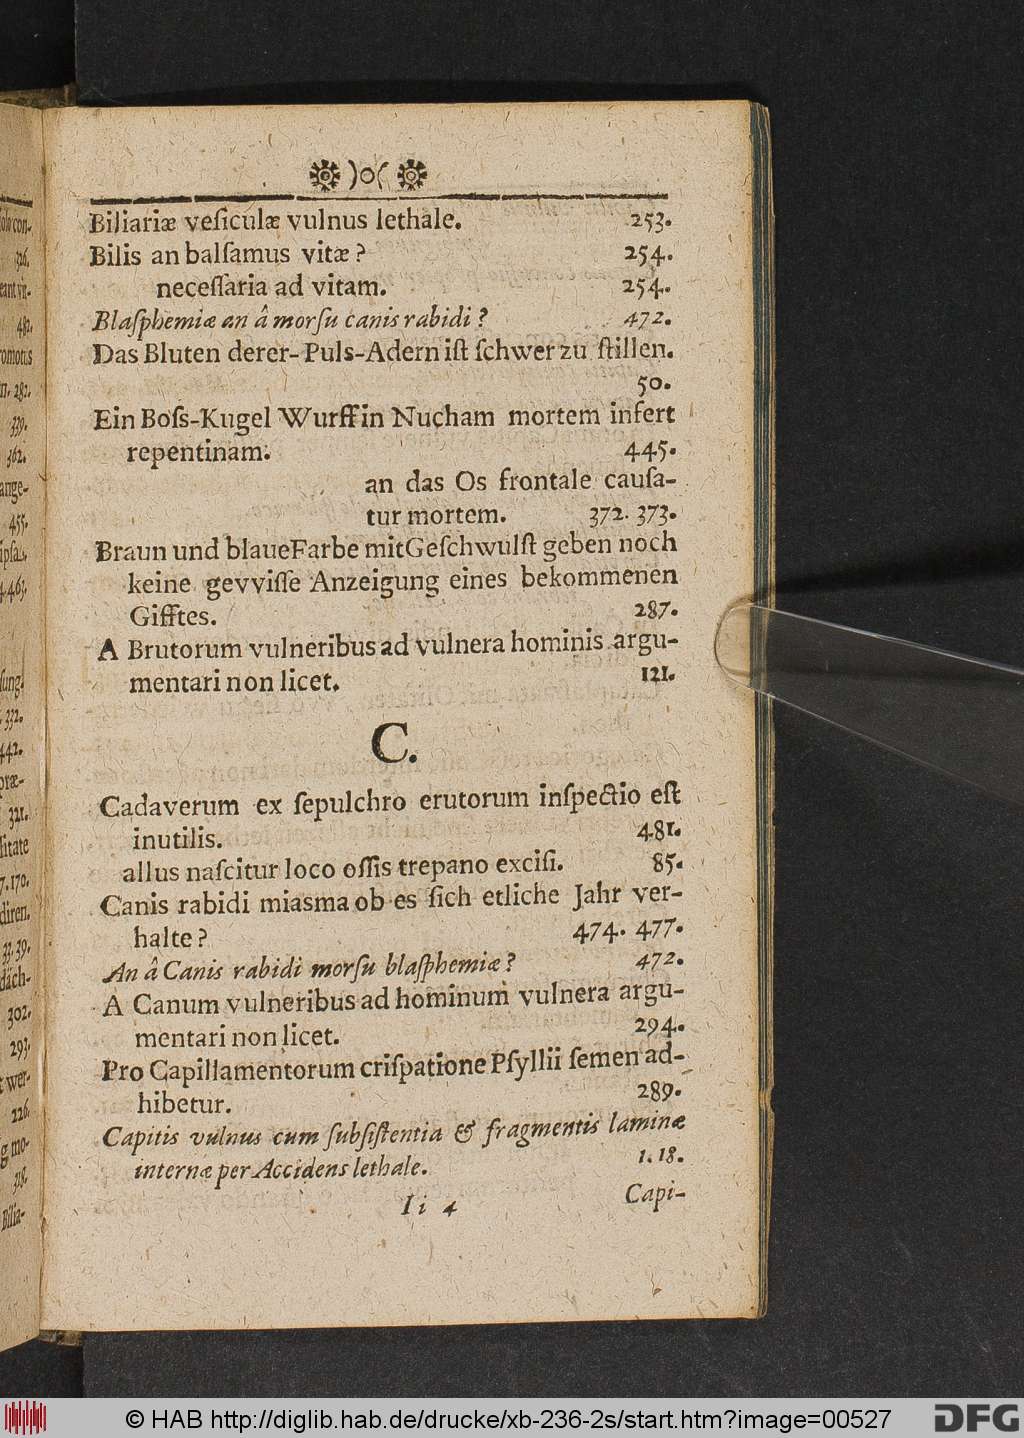 )o(
Biliariæ veſiculæ vulnus lethale. 253.
Bilis an balſamus vitæ? 254.
neceſſaria ad vitam. 254.
Blaſphemiæ an â morſu canis rabidi? 472.
Das Bluten derer-Puls-Adern iſt ſchwer zu ſtillen.
50.
Ein Boſs-Kugel Wurff in Nucham mortem infert
repentinam. 445.
an das Os frontale cauſa-
tur mortem. 372. 373.
Braun und blaue Farbe mit Geſchwulſt geben noch
keine gevviſſe Anzeigung eines bekommenen
Gifftes. 287.
A Brutorum vulneribus ad vulnera hominis argu-
mentari non licet. 121.
C.
Cadaverum ex ſepulchro erutorum inſpectio eſt
inutilis. 481.
allus naſcitur loco oſſis trepano exciſi. 85.
Canis rabidi miasma ob es ſich etliche Jahr ver-
halte? 474. 477.
An â Canis rabidi morſu blaſphemiæ? 472.
A Canum vulneribus ad hominum vulnera argu-
mentari non licet. 294.
Pro Capillamentorum criſpatione Pſyllii ſemen ad-
hibetur. 289.
Capitis vulnus cum ſubſiſtentia & fragmentis laminæ
internæ per Accidens lethale. 1. 18.
Ii 4 Capi-
© HAB http://diglib.hab.de/drucke/xb-236-2s/start.htm?image=00527
DFG